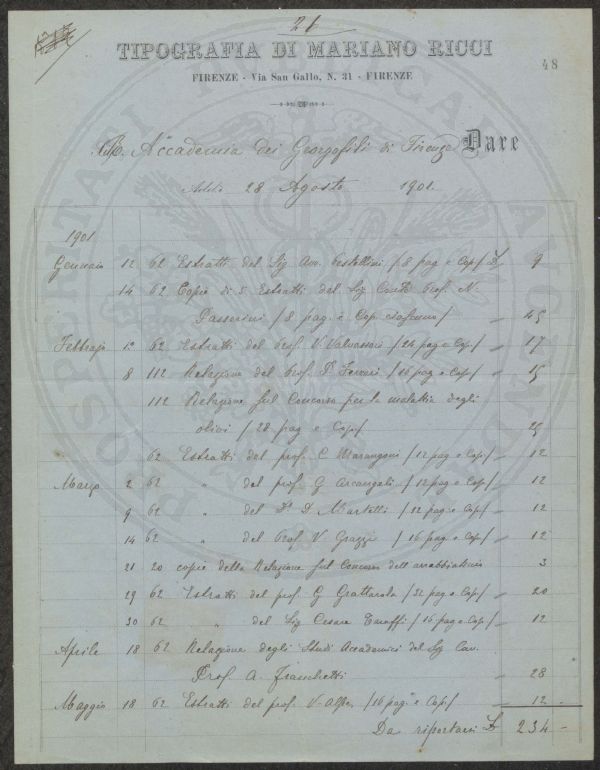 26
48
TIPOGRAFIA DI MARIANO RICCI
FIRENZE - Via San Gallo, N. 31 - FIRENZE
Accademia dei Georgofili di Firenze Dare
Addì 28 Agosto 1901.
1901
Gennaio 12 62 Estratti del Sig. Avv. Castellini / 8 pag e Cop/ £ 9
14 62 Copie di 5 Estratti del Sig Conte Prof. N.
Passerini / 8 pag. e Cop ciascuno/ " 45
Febbrajo 1° 62 Estratti del Prof. V. Valvassori / 24 pag e Cop/ " 17
8 112 Relazione del prof. Ferrari / 16 pag e Cop/ " 15
112 Relazione sul Concorso per le malattie degli
olivi / 28 pag e Cop/ 25
62 Estratti del prof. C. Marangoni / 12 pag e Cop/ " 12
Marzo 2 62 " del prof. G Arcangeli / 12 pag e Cop/ " 12
9 62 " del Dr D. Martelli / 12 pag e Cop/ " 12
14 62 " del Prof V. Grazzi / 16 pag e Cop/ " 12
21 20 copie della Relazione sul Concorso dell'arrabbiaticcio 3
29 62 Estratti del prof. G Grattarola / 32 pag e Cop/ " 20
30 62 " del Sig Cesare / 16 pag e Cop/ " 12
Aprile 18 62 Relazione degli Studi Accademici del Sig Cav.
Prof. A. Franchetti " 28
Maggio 18 62 Estratti del prof. V. Alpe / 16 pag e Cop/ " 12
Da riportarsi £ 234 -
PROSPERITATI PUBLICAE AUGENDAE